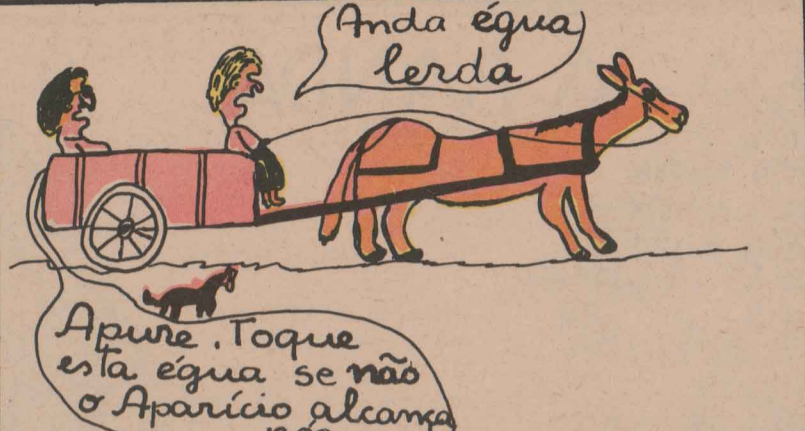 Anda égua
lerda
Apure. Toque
esta égua se não
o Aparício alcança
nós